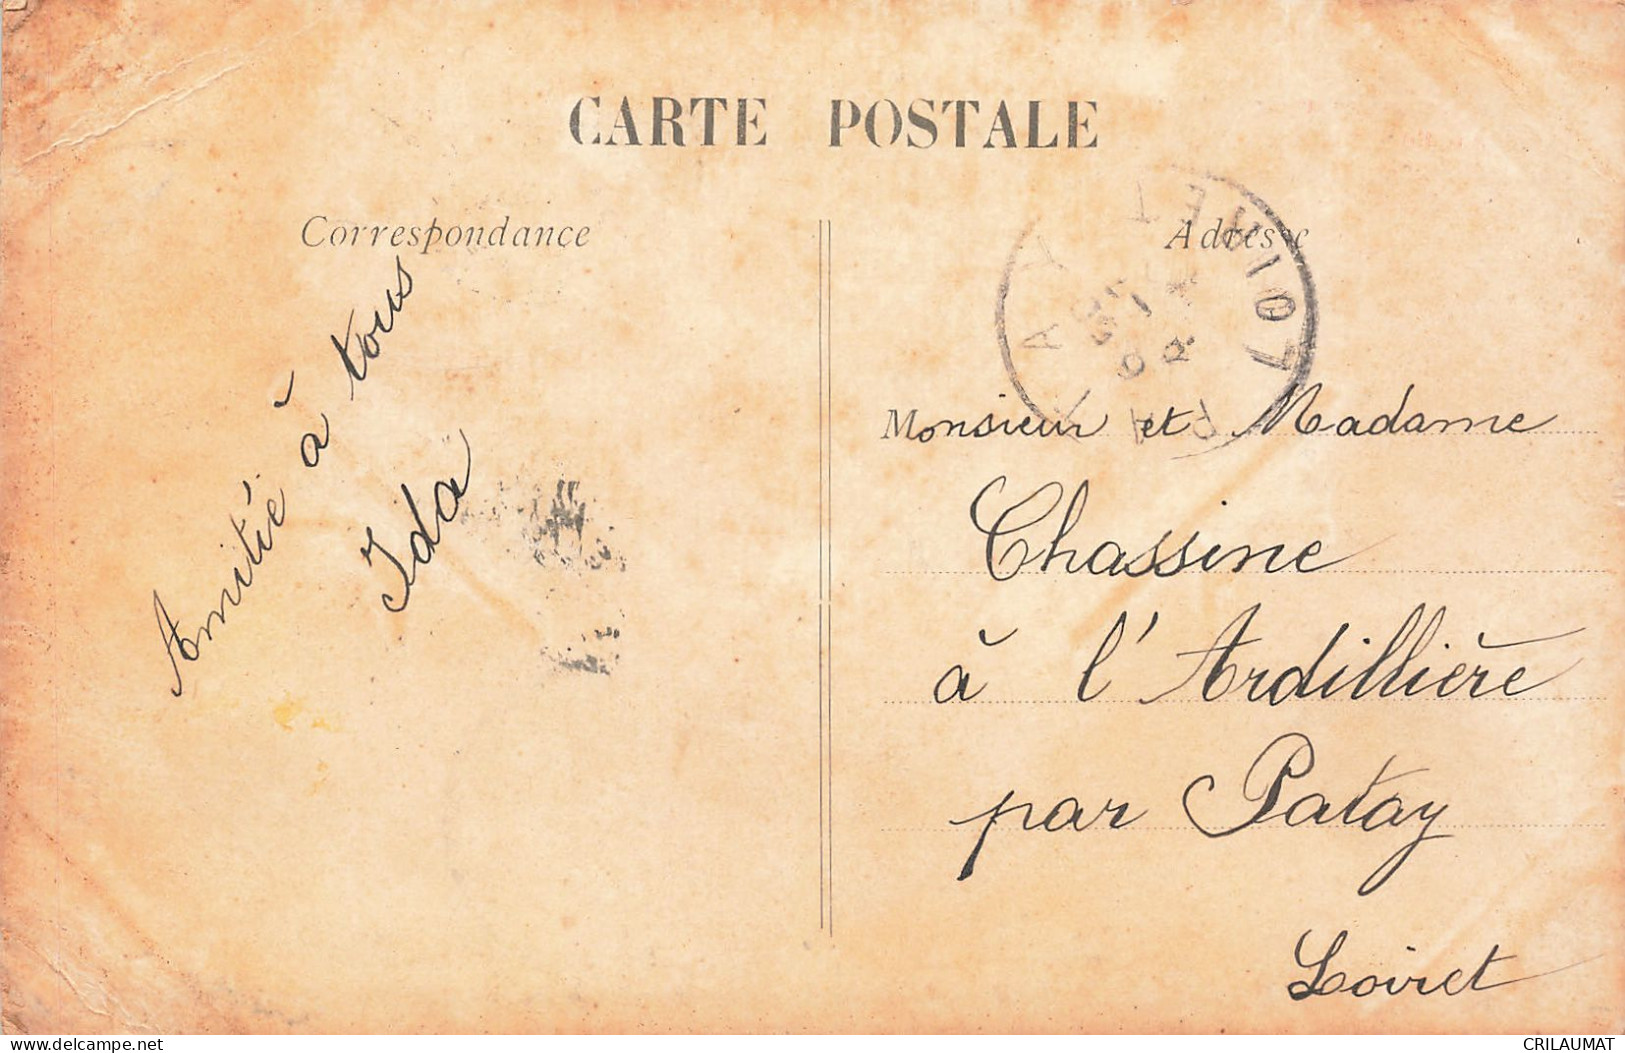 CARTE POSTALE
Correspondance
Amitié à tous
Ida
Adresse
PATAY
LOIRET
Monsieur et Madame
Chassine
à l'Ardillière
par Patay
Loiret
www.delcampe.net
CRILAUMAT